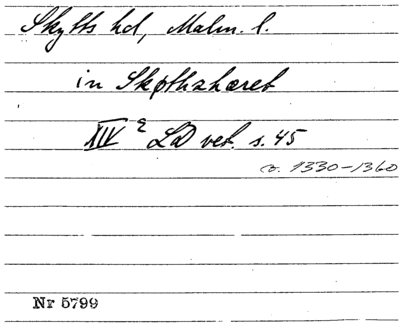 Skytts hd, Malm. l.
in Skøthzhæret
XIV 2 LD vet. s. 45
c. 1330-1360
Nr 5799